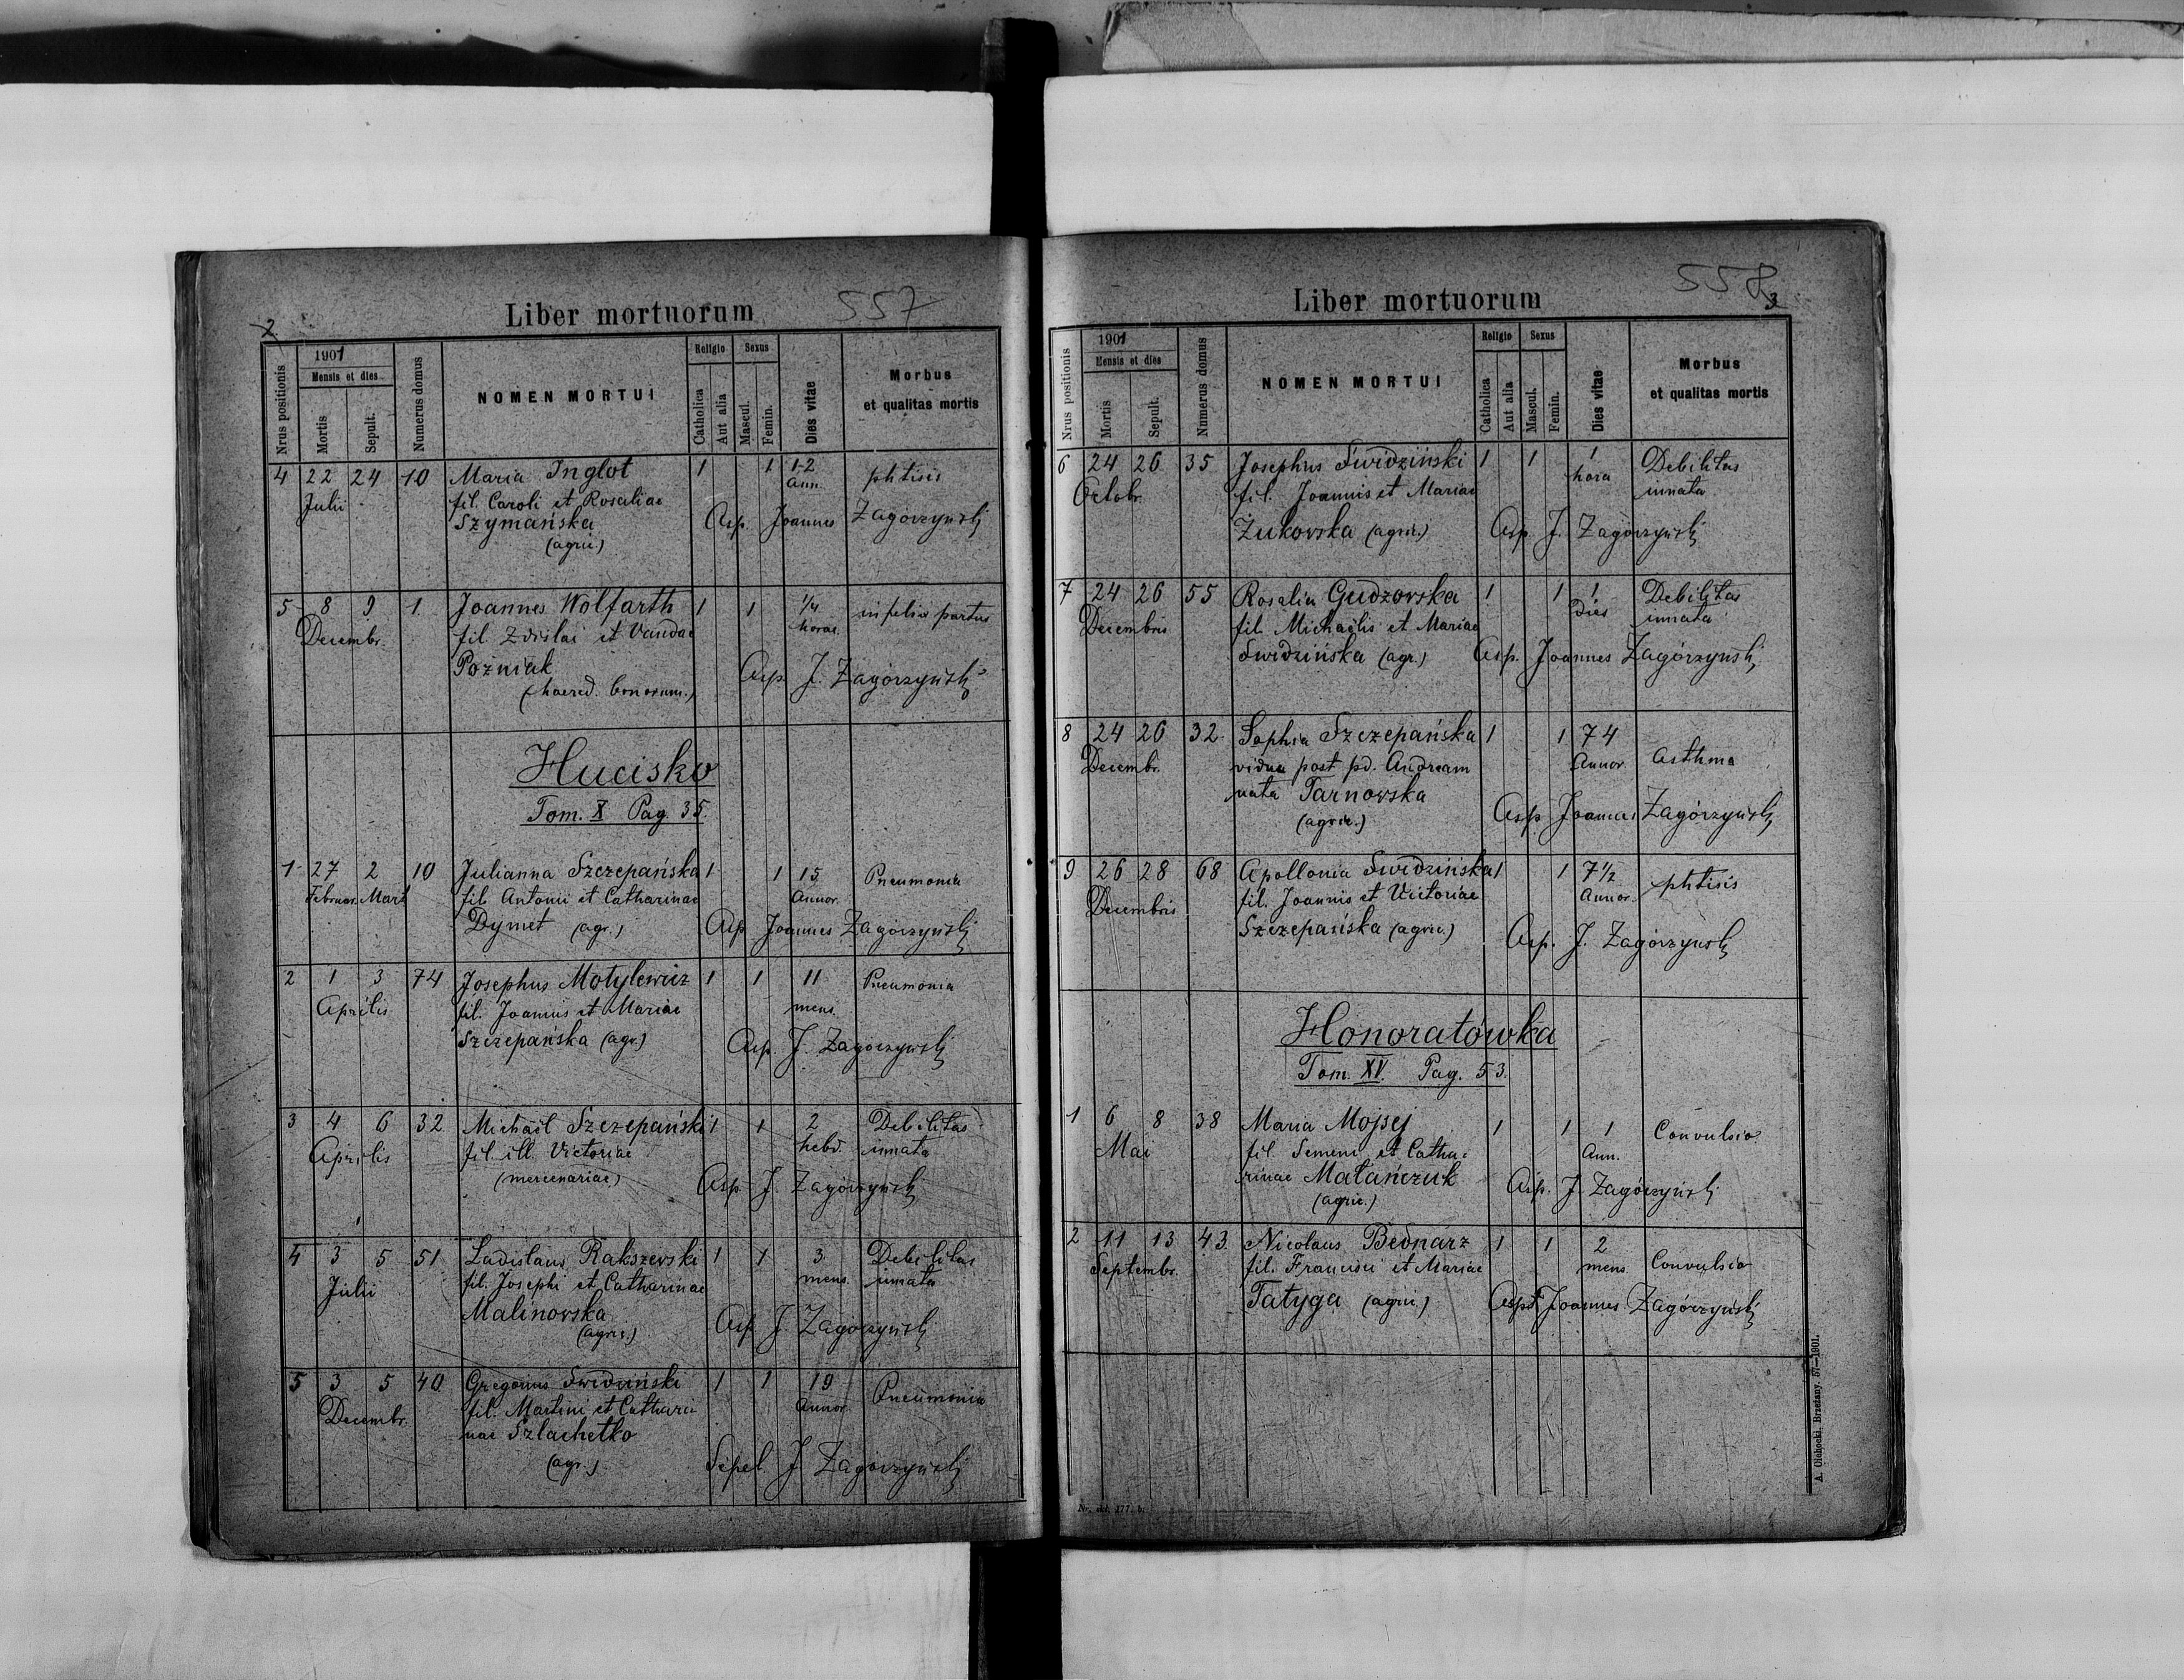 2
Liber mortuorum
557
Nrus positionis
1901
Mensis et dies
Mortis
Sepult.
Numerus domus
NOMEN MORTUI
Religio
Catholica
Aut alia
Sexus
Mascul.
Femin.
Dies vitae
Morbus
et qualitas mortis
4 22 24 10 Maria Inglot 1 1 1-2 phtisis
Julii fil. Caroli et Rosaliae Ann.
Szymańska Asp. Joannes Zagórzyński
(agric.)
5 8 9 1. Joannes Wolfarth 1 1 1/4 infelix partus
Decembr. fil. Zdislai et Vandae horae
Poźniak Asp. J. Zagórzyński
(haered. bonorum.)
Hucisko
Tom. X Pag. 35.
1 27 2 10 Julianna Szczepańska 1 1 15 Pneumonia
Februar. Mart fil. Antonii et Catharinae Annor.
Dymet (agr.) Asp Joannes Zagórzyński
2 1 3 74 Josephus Motylewicz 1 1 11 Pneumonia
Aprilis fil. Joannis et Mariae mens.
Szczepańska (agr.) Asp. J. Zagórzyński
3 4 6 32 Michaël Szczepański 1 1 2 Debilitas
Aprilis fil. ill. Victoriae hebd. innata
(mercenariae) Asp J. Zagórzyński
4 3 5 51 Ladislaus Rakszewski 1 1 3 Debilitas
Julii fil. Josephi et Catharinae mens. innata
Malinowska Asp J. Zagórzyński
(agric.)
5 3 5 40 Gregorius Swidziński 1 1 19 Pneumonia
Decembr. fil. Martini et Cathari- Annor.
nae Szlachetko
(agr.) Sepel. J. Zagórzyński
558
3
Liber mortuorum
Nrus positionis
1901
Mensis et dies
Mortis
Sepult.
Numerus domus
NOMEN MORTUI
Religio
Catholica
Aut alia
Sexus
Mascul.
Femin.
Dies vitae
Morbus
et qualitas mortis
6 24 26 35 Josephus Swidziński 1 1 1 Debilitas
Octobr. fil. Joannis et Mariae hora innata
Żukowska (agric.) Asp J. Zagórzyński
7 24 26 55 Rosalia Gudzowska 1 1 1 Debilitas
Decembris fil. Michaëlis et Mariae dies innata
Swidzińska (agr.) Asp. Joannes Zagórzyński
8 24 26 32 Sophia Szczepańska 1 1 74 Asthma
Decembr. vidua post pd. Andream Annor.
nata Tarnowska
(agric.) Asp Joannes Zagórzyński
9 26 28 68 Apollonia Swidzińska 1 1 7 1/2 phtisis
Decembris fil. Joannis et Victoriae Annor.
Szczepańska (agric.) Asp. J. Zagórzyński
Honoratówka
Tom. XV. Pag. 53.
1 6 8 38 Maria Mojsej 1 1 1 Convulsio
Mai fil. Semeni et Catha- Ann.
rinae Matańczuk Asp. J. Zagórzyński
(agric.)
2 11 13 43. Nicolaus Bednarz 1 1 2 Convulsio
Septembr. fil. Francisci et Mariae mens.
Tatyga (agric.) Asp Joannes Zagórzyński
A. Cichocki, Brzeżany. 57—1901.